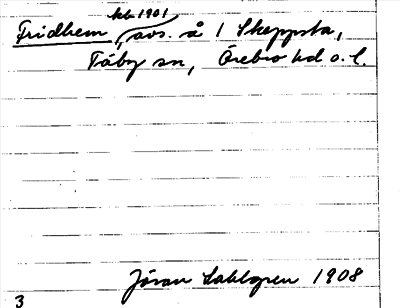 kb 1901
Fridhem, avs. å 1 Skeppsta,
Täby sn, Örebro hd o. l.
Jöran Sahlgren 1908
3